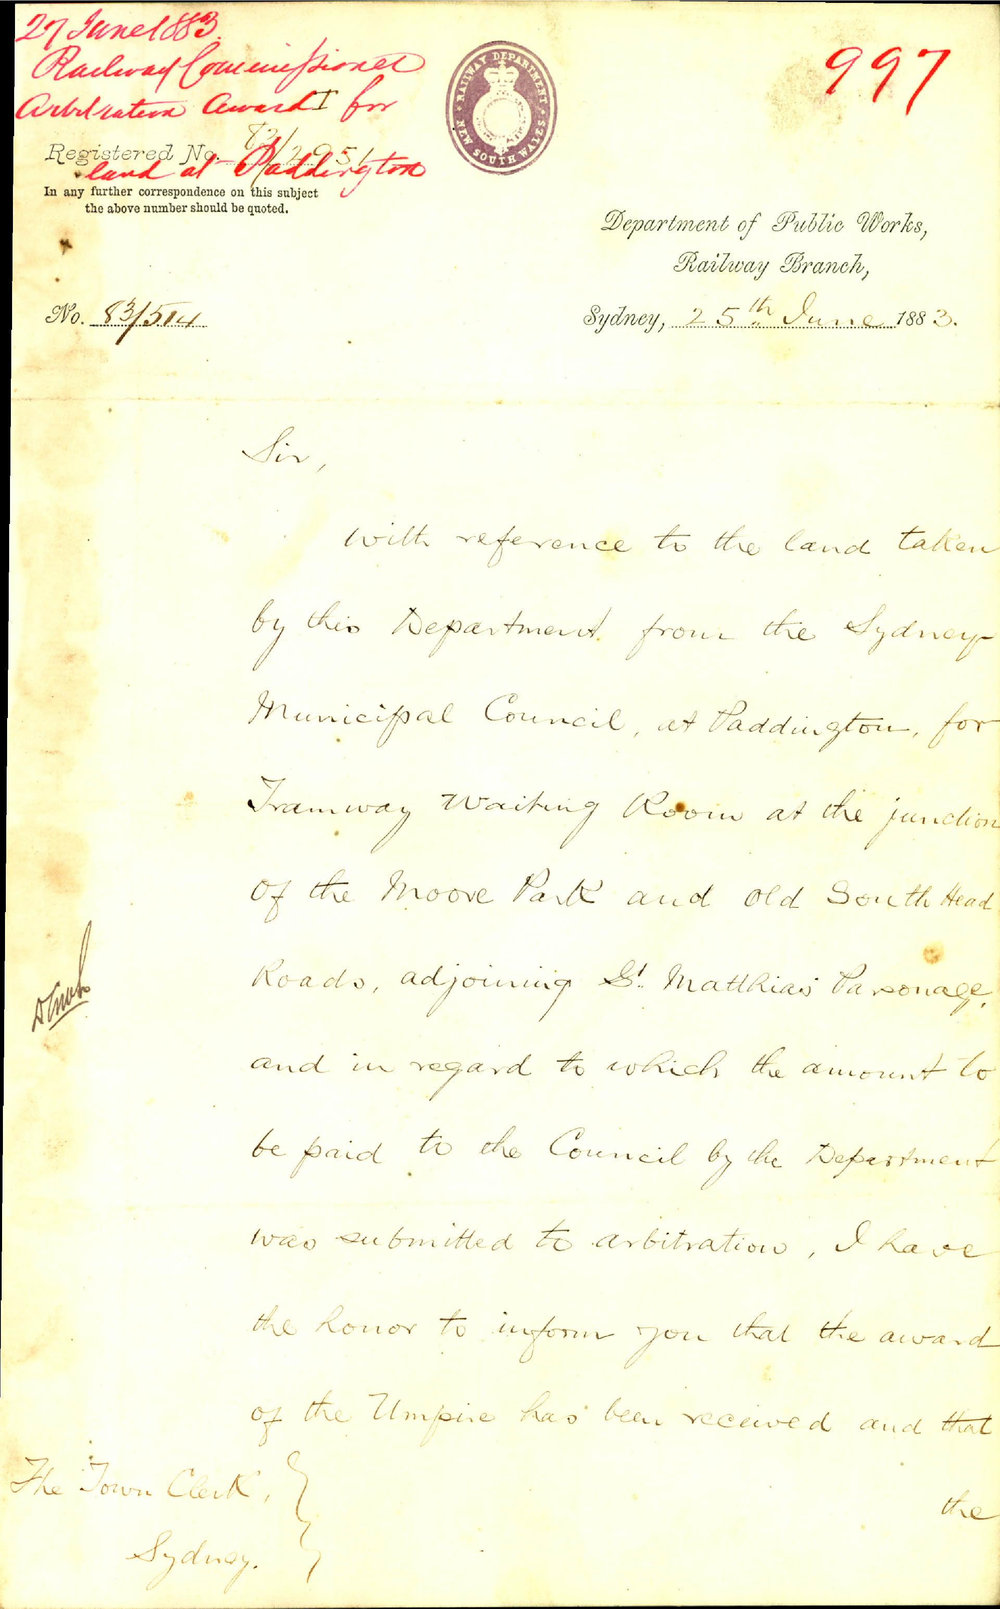 27 June 1883.
Railway Commissioner
Arbitration Award for
Registered No. 82/2951
land at Paddington
In any further correspondence on this subject
the above number should be quoted.
RAILWAY DEPARTMENT
NEW SOUTH WALES
997
Department of Public Works,
Railway Branch,
No. 83/514
Sydney, 25th June 1883.
Sir,
with reference to the land taken
by this Department from the Sydney
Municipal Council, at Paddington, for
Tramway Waiting Room at the junction
of the Moore Park and Old South Head
Roads, adjoining St. Matthias' Parsonage,
and in regard to which the amount to
be paid to the Council by the Department
was submitted to arbitration, I have
the honor to inform you that the award
of the Umpire has been received and that
the
The Town Clerk,
Sydney.